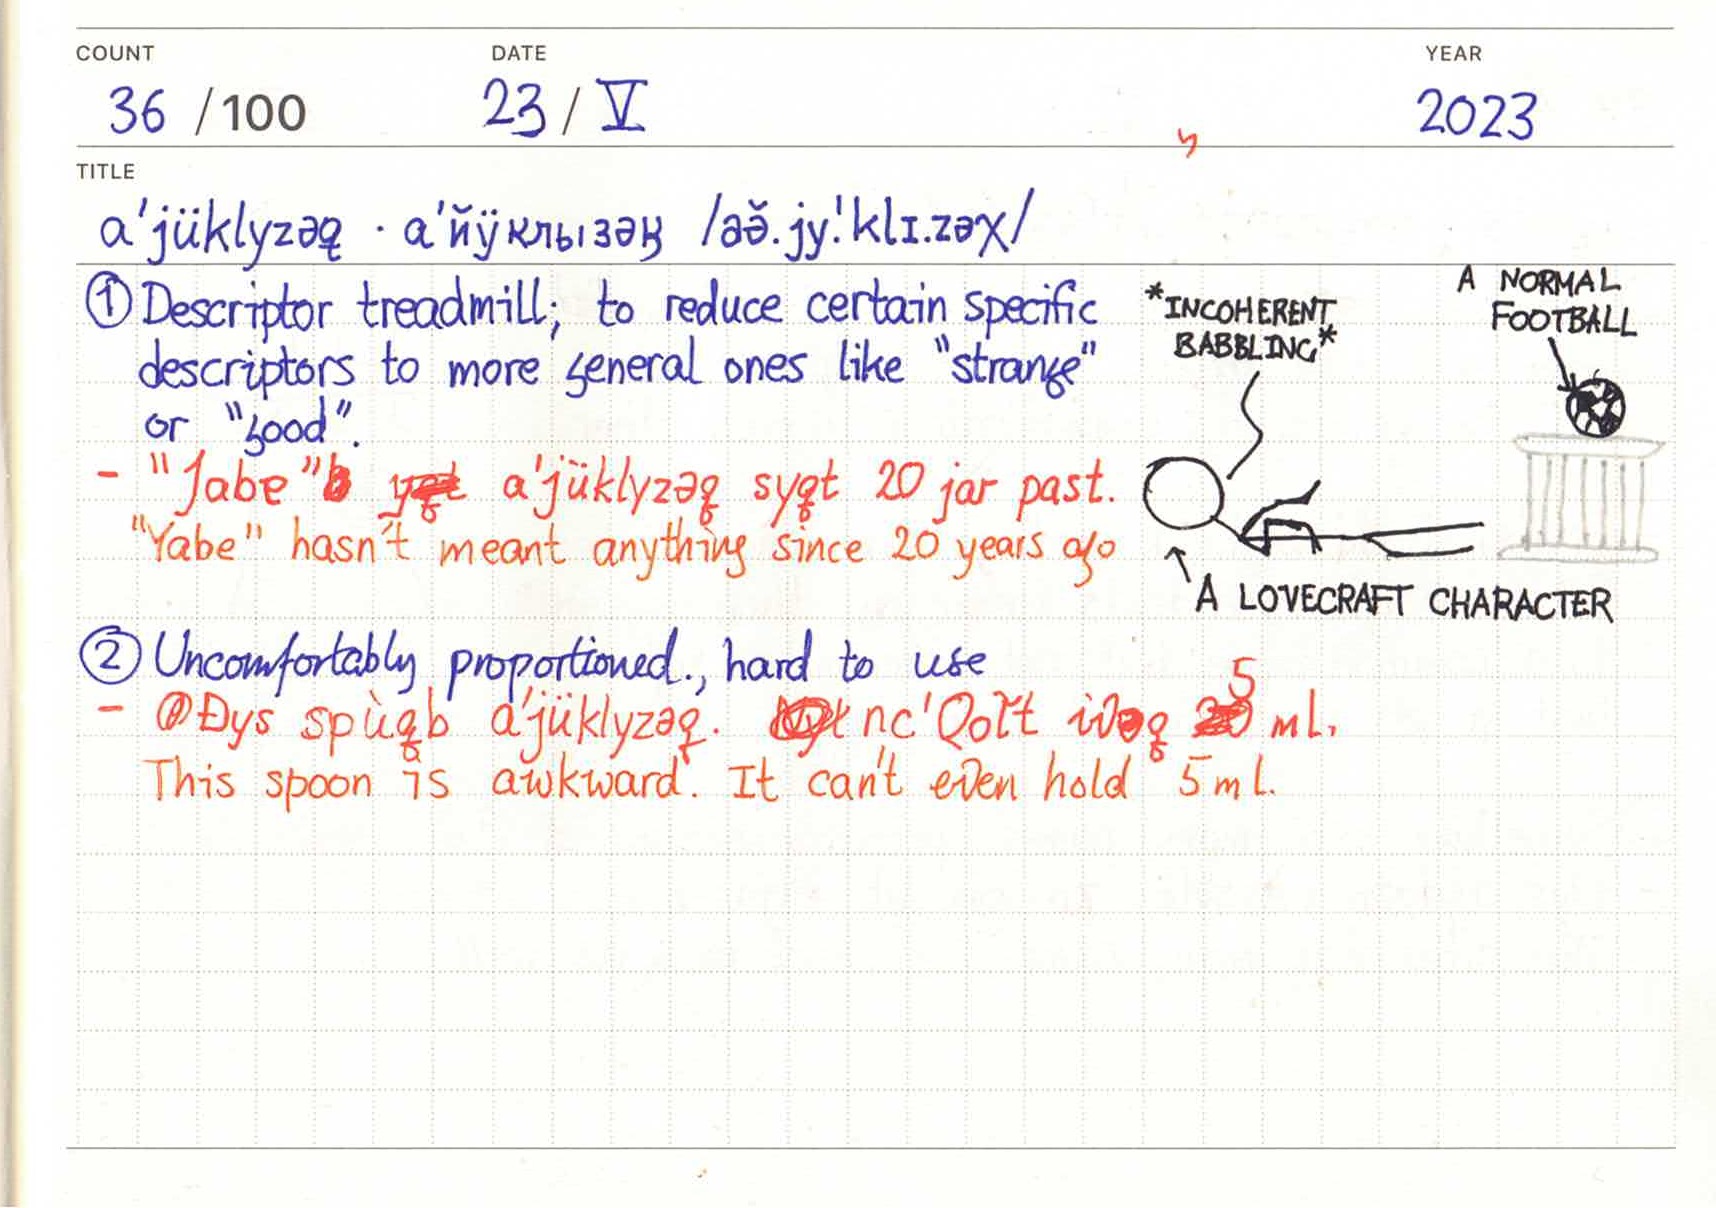 COUNT DATE YEAR
36 /100 23 / V 2023
TITLE
a'jüklyzəq · а'йӱклызəӄ /əə̆.jy.'klɪ.zəχ/
① Descriptor treadmill; to reduce certain specific
descriptors to more general ones like "strange"
or "good".
- "Jabe" a'jüklyzəq syqt 20 jar past.
"Yabe" hasn't meant anything since 20 years ago
*INCOHERENT
BABBLING*
A NORMAL
FOOTBALL
A LOVECRAFT CHARACTER
② Uncomfortably proportioned., hard to use
- Đys spùqb a'jüklyzəq. nc'Qolt 5 ml.
This spoon is awkward. It can't even hold 5 ml.